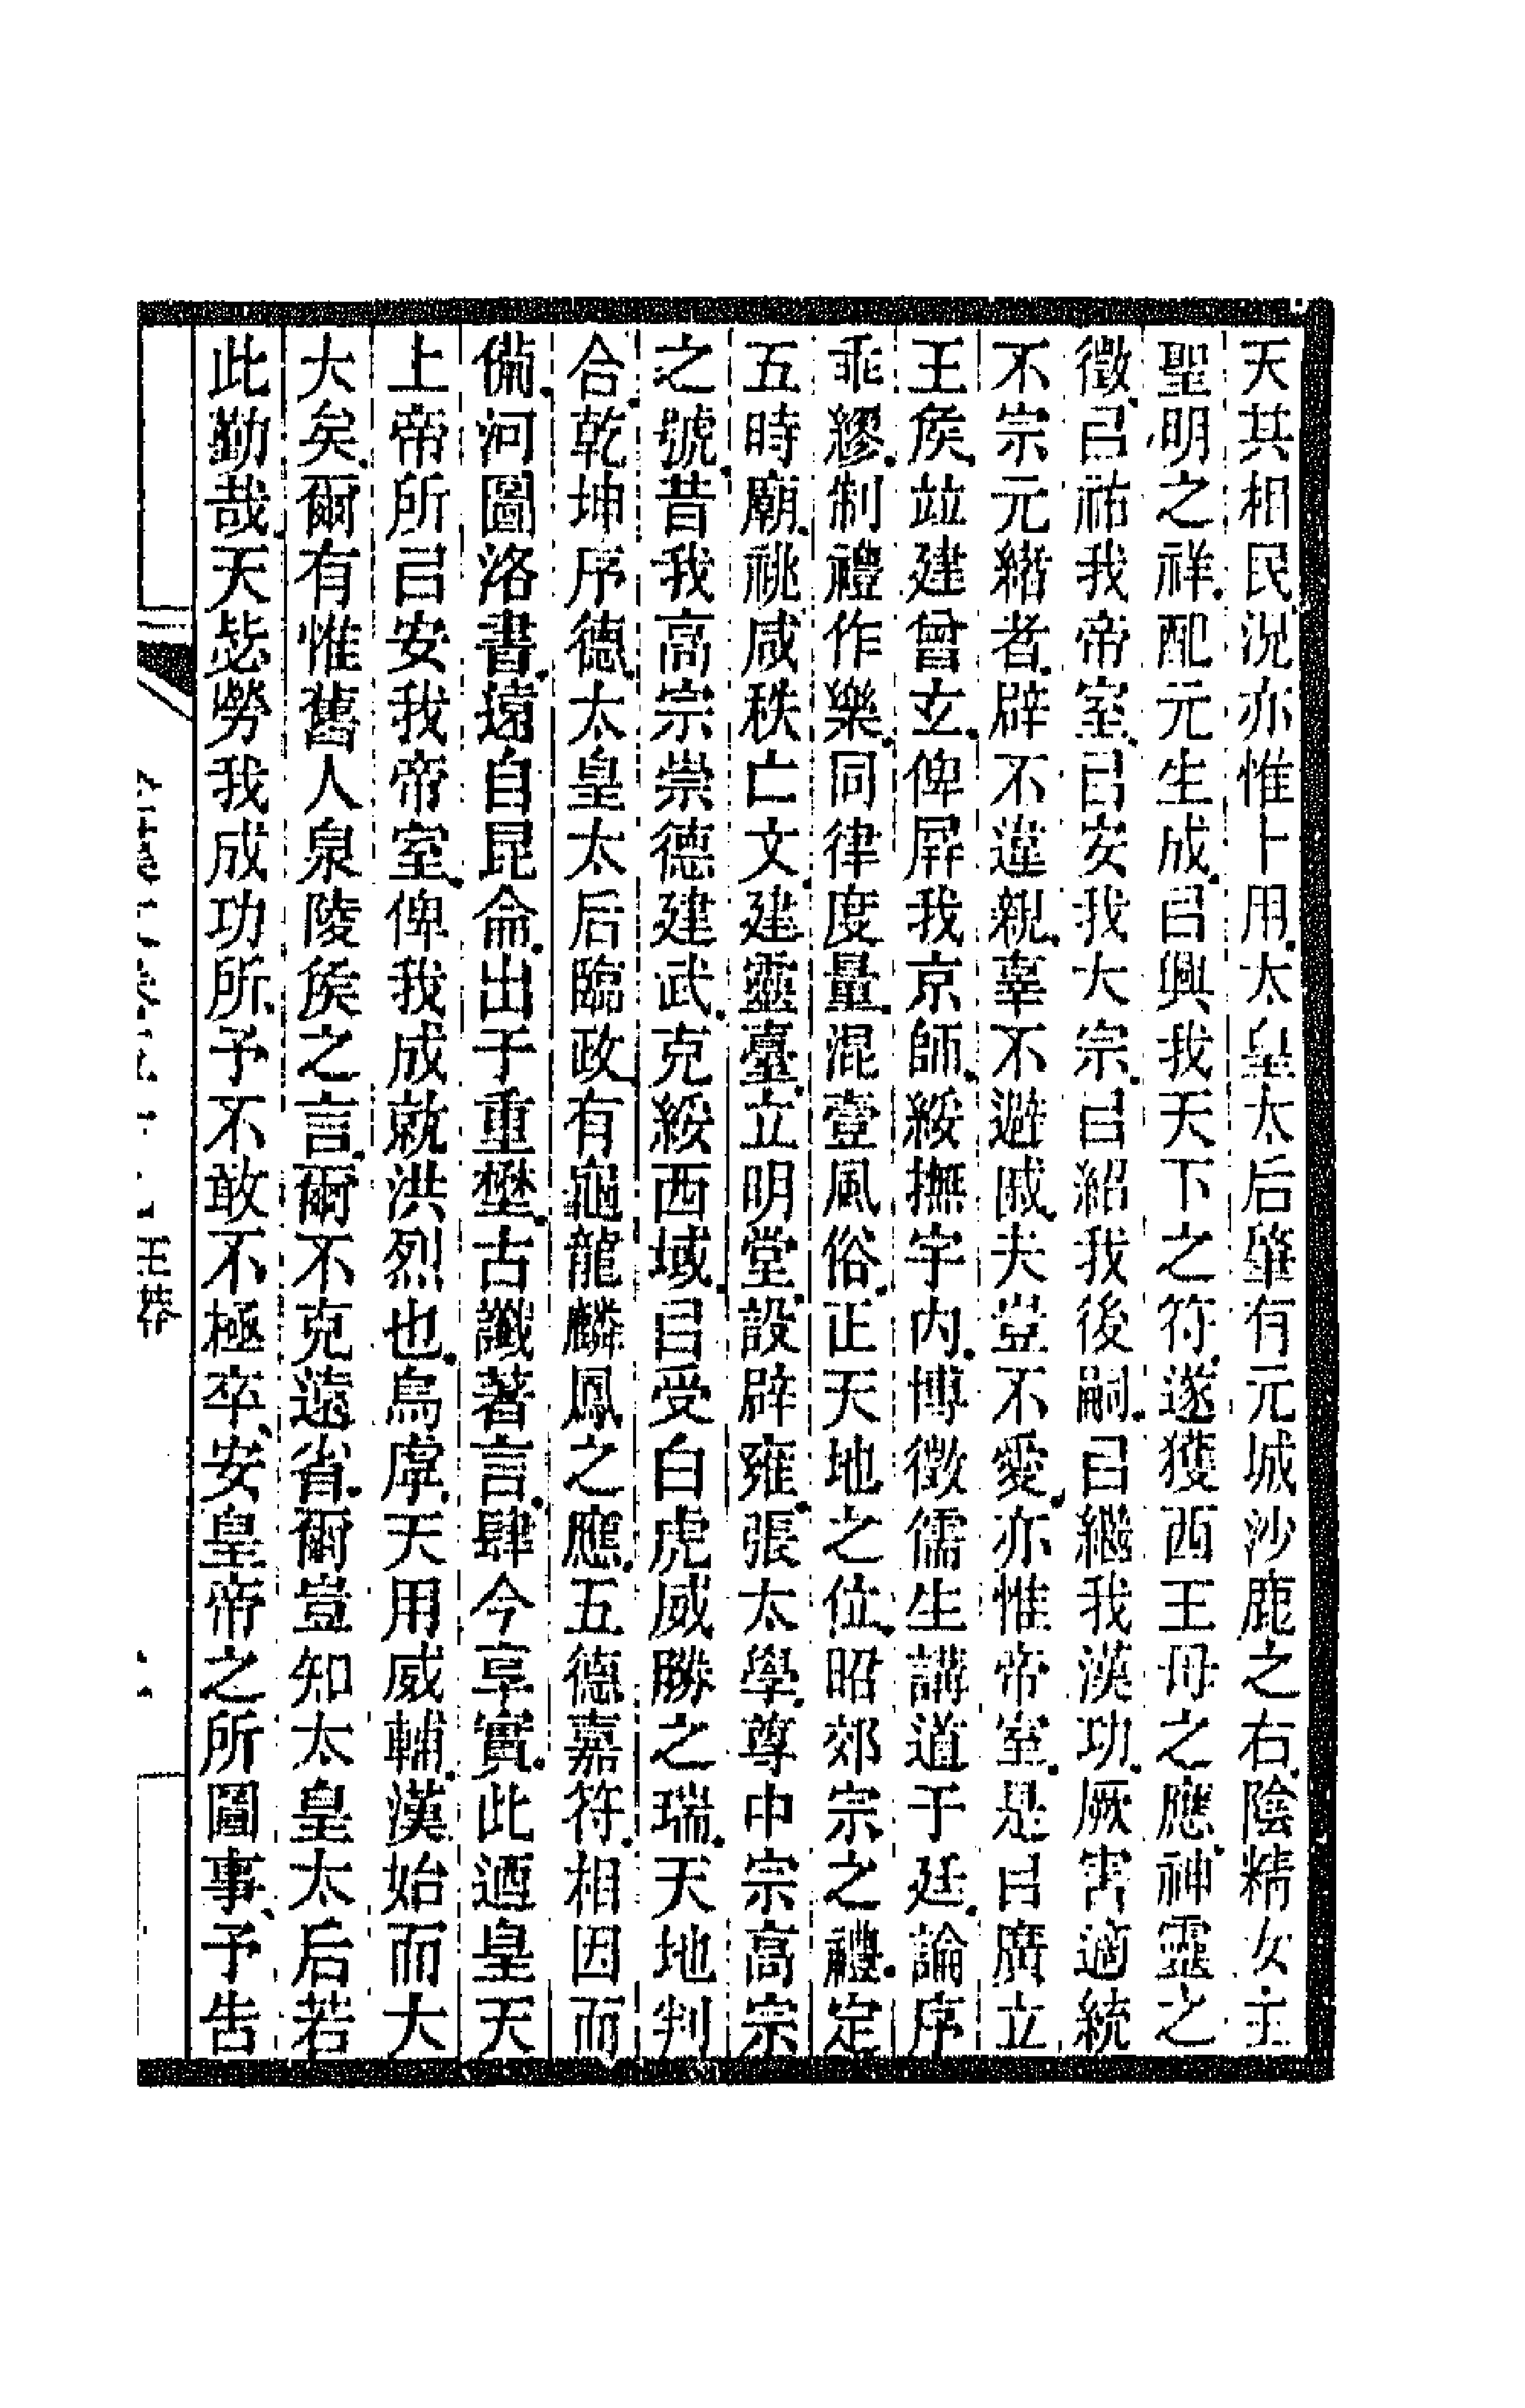 天其相民況亦惟卜用太皇太后肇有元城沙鹿之右陰精女主
聖明之祥配元生成㠯興我天下之符遂獲西王母之應神靈之
徵㠯祐我帝室㠯安我大宗㠯紹我後嗣㠯繼我漢功厥害適統
不宗元緒者辟不違親辜不避戚夫豈不愛亦惟帝室是㠯廣立
王矦竝建曾玄俾屛我京師綏撫宇内博徵儒生講道于廷論序
乖繆制禮作樂同律度量混壹風俗正天地之位昭郊宗之禮定
五畤廟祧咸秩亡文建靈臺立明堂設辟雍張太學尊中宗高宗
之號昔我高宗崇德建武克綏西域㠯受白虎威勝之瑞天地判
合乾坤序德太皇太后臨政有龜龍麟鳳之應五德嘉符相因而
備河圖洛書遠自昆侖出于重壄古讖著言肆今享實此迺皇天
上帝所㠯安我帝室俾我成就洪烈也烏虖天用威輔漢始而大
大矣爾有惟舊人泉陵矦之言爾不克遠省爾豈知太皇太后若
此勤哉天毖勞我成功所予不敢不極卒安皇帝之所圖事予告
王莽